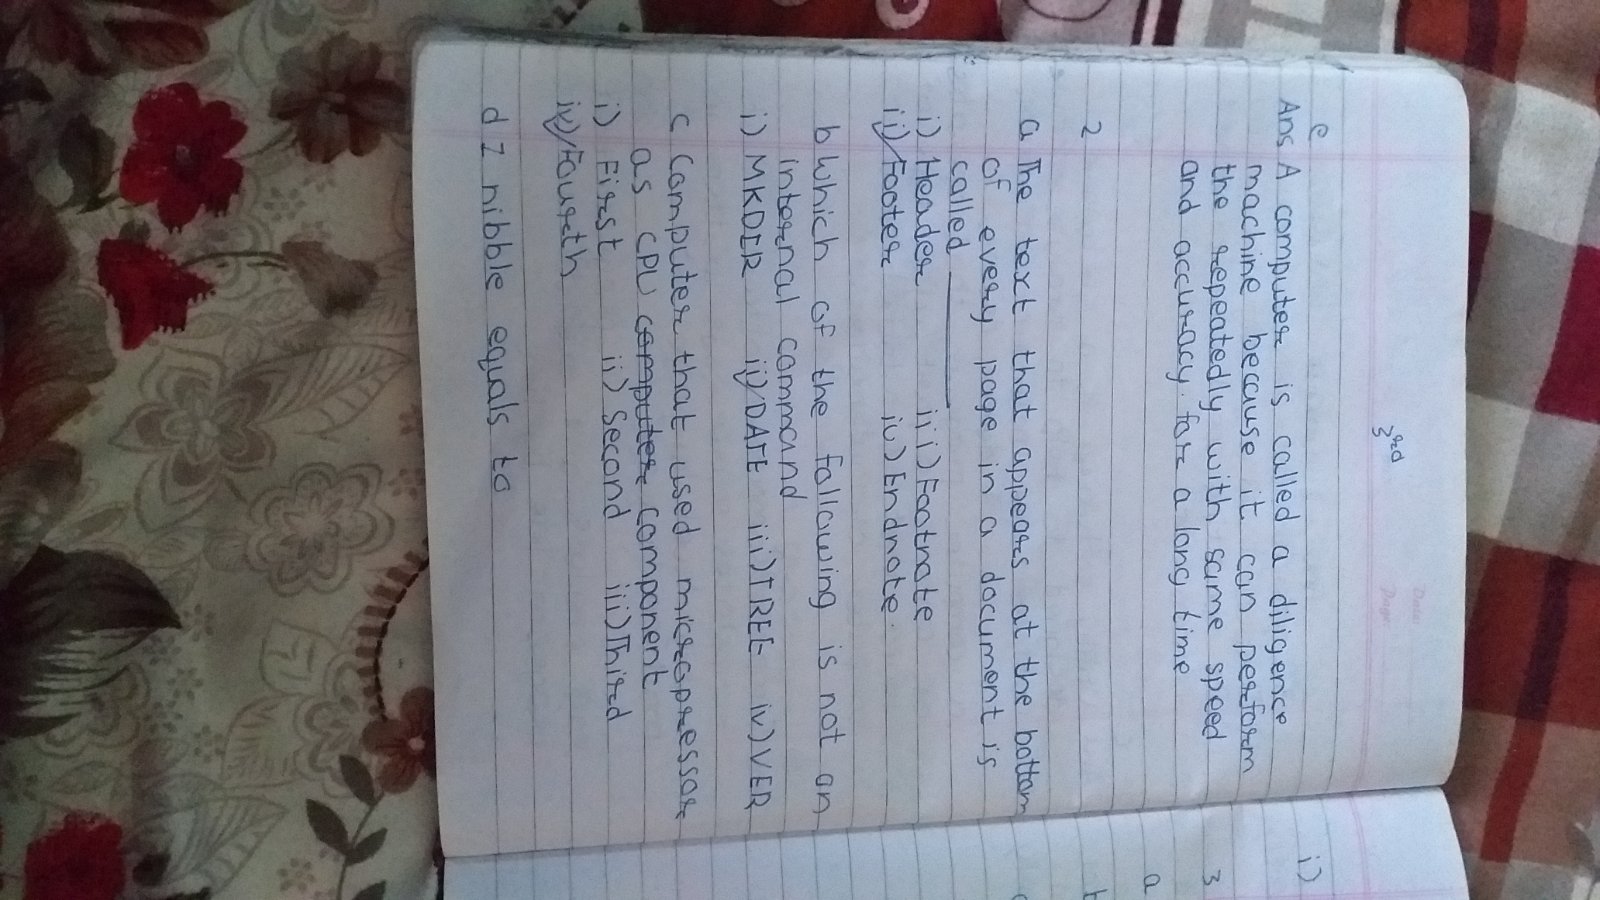 3rd
e
Ans A computer is called a diligence
machine because it can perform
the repeatedly with same speed
and accuracy for a long time
2
a The text that appears at the bottom
of every page in a document is
called
i) Header iii) Footnote
ii) Footer iv) Endnote.
b Which of the following is not an
internal command
i) MKDIR ii) DATE iii) TREE iv) VER
c Computer that used micropressor
as CPU computer component
i) First ii) Second iii) Third
iv) Fourth
d I nibble equals to
i)
3
a
b